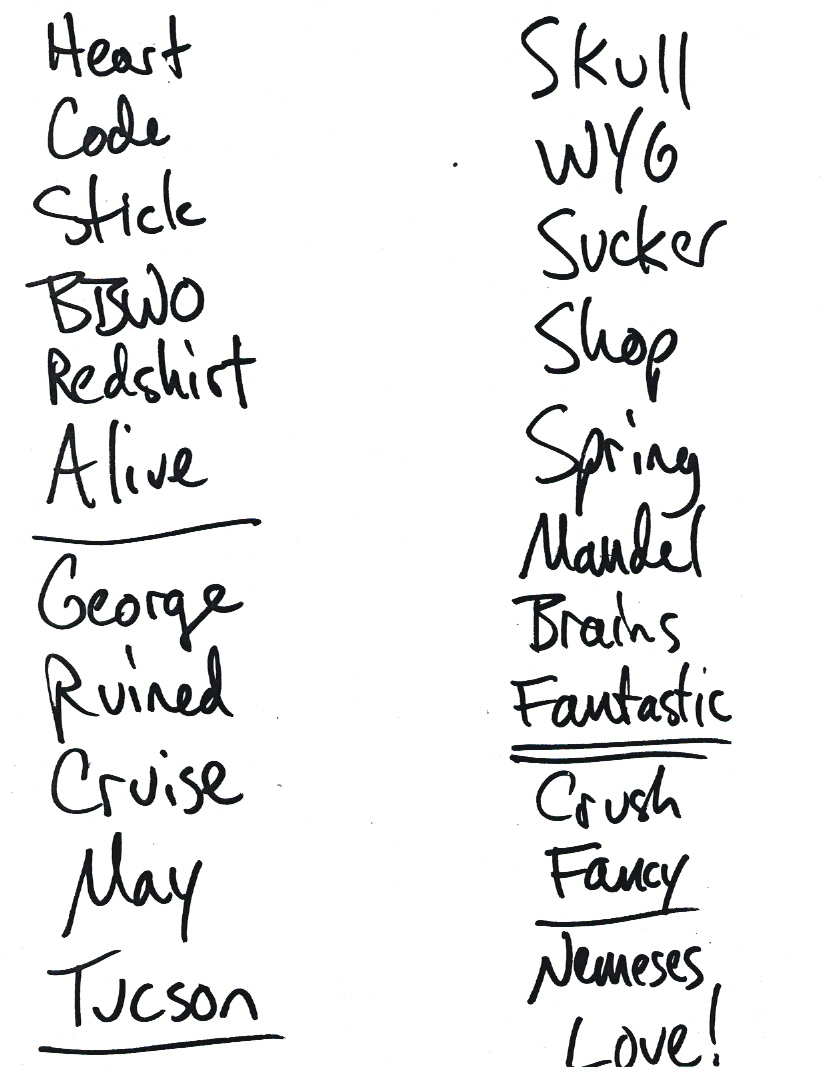 Heart
Code
Stick
BBWO
Redshirt
Alive
George
Ruined
Cruise
May
Tucson
Skull
WYG
Sucker
Shop
Spring
Mandel
Brains
Fantastic
Crush
Fancy
Nemeses
Love!